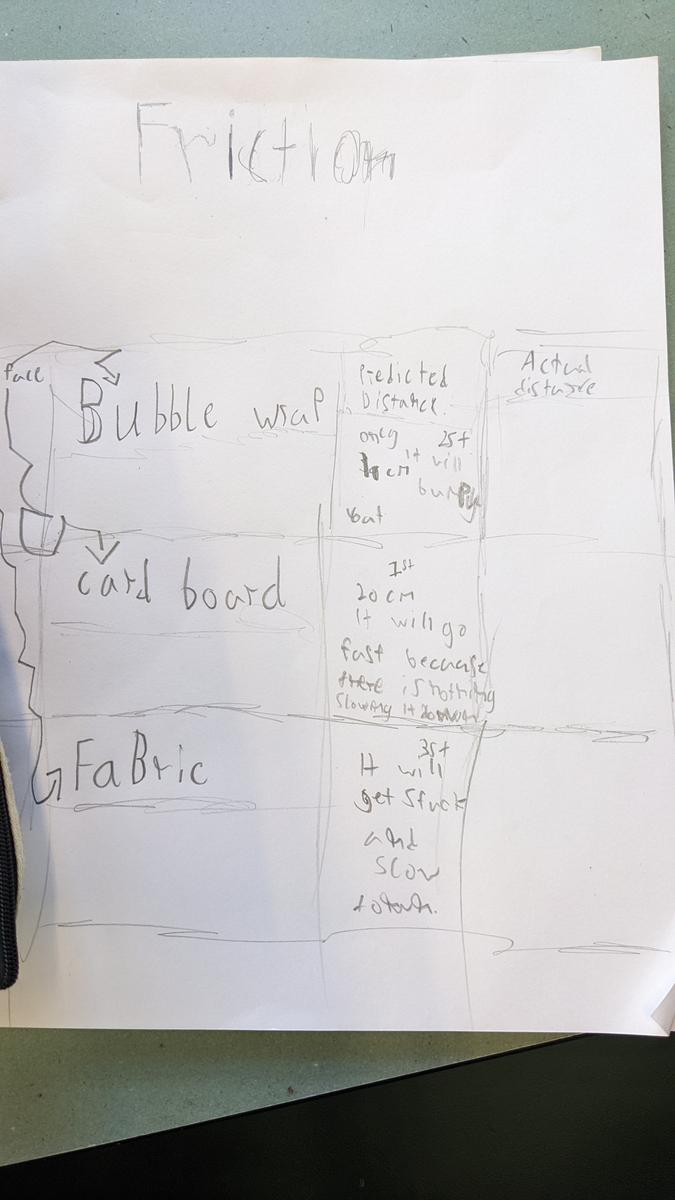 Friction
face
Bubble wrap
Predicted
Distance.
Actual
distance
only 2st
cm it will
bumpy
card board
1st
20 cm
It will go
fast because
there is nothing
slowing it down
FaBric
3st
It will
get stuck
and
slow